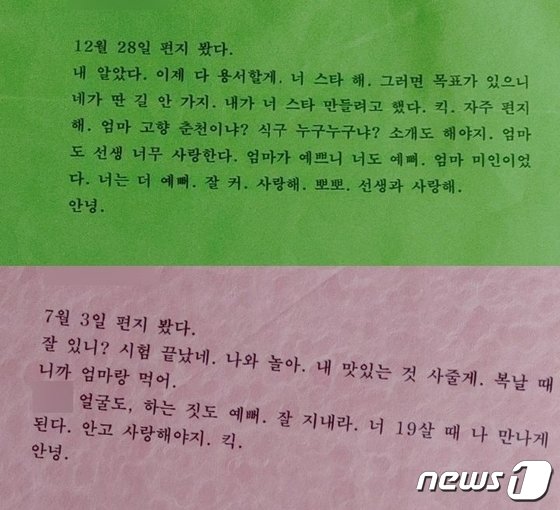 12월 28일 편지 봤다.
내 알았다. 이제 다 용서할게. 너 스타 해. 그러면 목표가 있으니
네가 딴 길 안 가지. 내가 너 스타 만들려고 했다. 킥. 자주 편지
해. 엄마 고향 춘천이냐? 식구 누구누구냐? 소개도 해야지. 엄마
도 선생 너무 사랑한다. 엄마가 예쁘니 너도 예뻐. 엄마 미인이었
다. 너는 더 예뻐. 잘 커. 사랑해. 뽀뽀. 선생과 사랑해.
안녕.
7월 3일 편지 봤다.
잘 있니? 시험 끝났네. 나와 놀아. 내 맛있는 것 사줄게. 복날 때
니까 엄마랑 먹어.
얼굴도, 하는 짓도 예뻐. 잘 지내라. 너 19살 때 나 만나게
된다. 안고 사랑해야지. 킥.
안녕.
news1